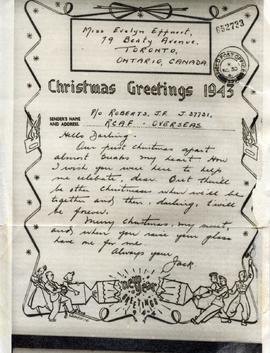 Miss Evelyn Effnert,
79 Beaty Avenue,
TORONTO,
ONTARIO, CANADA
652733
Christmas Greetings 1943
SENDER'S NAME
AND ADDRESS
P/O ROBERTS, J.F. J.27721.
RCAF - OVERSEAS
Hello Darling.
Our first christmas apart
almost breaks my heart. How
I wish you were here to help
me celebrate, dear. But there'll
be other christmases when we'll be
together and then, darling, I will
be forever.
Merry christmas, my sweet,
and when you raise your glass
have one for me
Always your
Jack